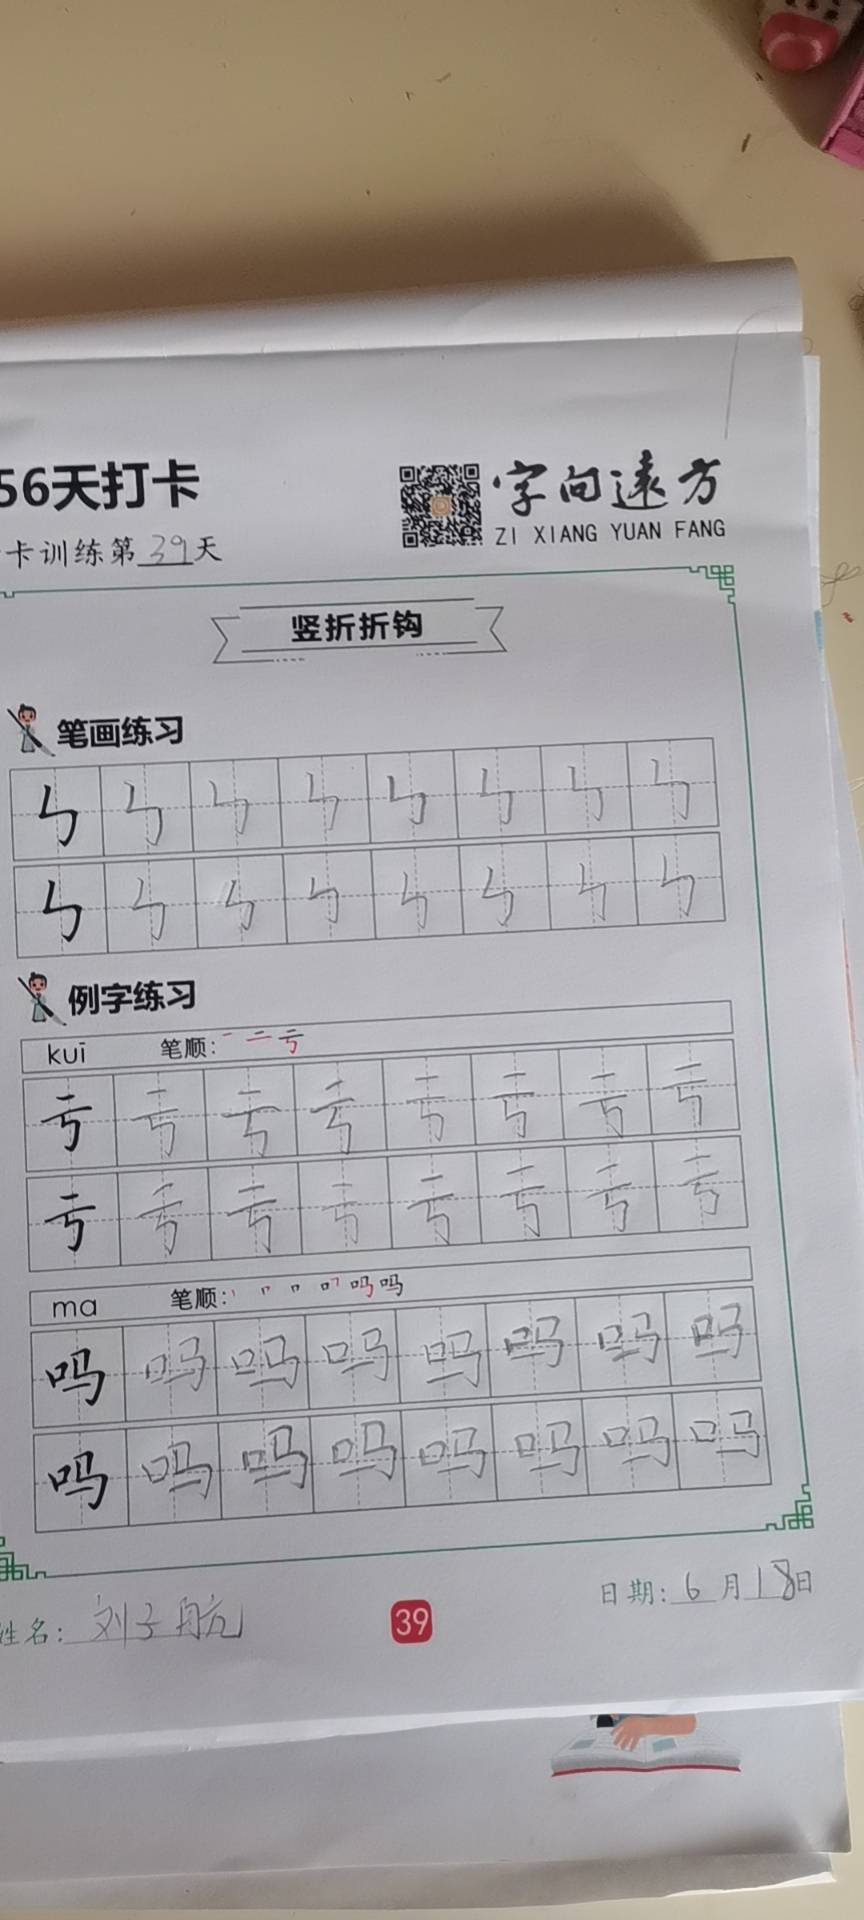 56天打卡
字向遠方
ZI XIANG YUAN FANG
卡训练第39天
竖折折钩
笔画练习
ㄣ ㄣ ㄣ ㄣ ㄣ ㄣ ㄣ ㄣ
ㄣ ㄣ ㄣ ㄣ ㄣ ㄣ ㄣ ㄣ
例字练习
kuī 笔顺: 一 二 亏
亏 亏 亏 亏 亏 亏 亏 亏
亏 亏 亏 亏 亏 亏 亏 亏
ma 笔顺: 丨 口 吗 吗
吗 吗 吗 吗 吗 吗 吗 吗
吗 吗 吗 吗 吗 吗 吗 吗
姓名: 刘子航
39
日期: 6月18日